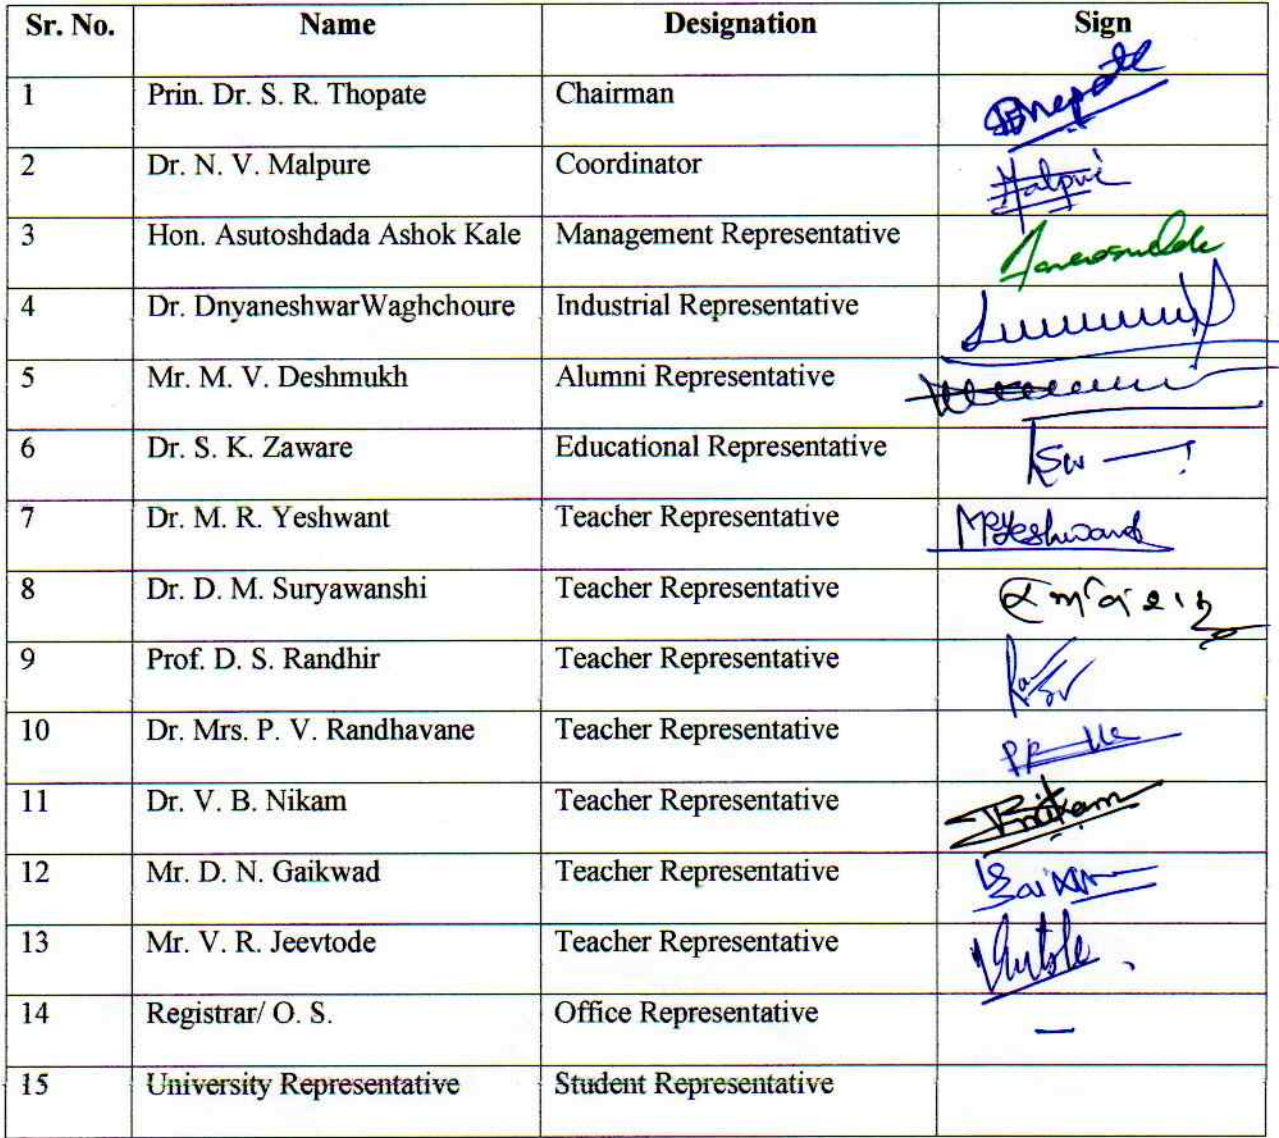 Sr. No. Name Designation Sign
1 Prin. Dr. S. R. Thopate Chairman
2 Dr. N. V. Malpure Coordinator
3 Hon. Asutoshdada Ashok Kale Management Representative
4 Dr. DnyaneshwarWaghchoure Industrial Representative
5 Mr. M. V. Deshmukh Alumni Representative
6 Dr. S. K. Zaware Educational Representative
7 Dr. M. R. Yeshwant Teacher Representative MRYeshwant
8 Dr. D. M. Suryawanshi Teacher Representative
9 Prof. D. S. Randhir Teacher Representative
10 Dr. Mrs. P. V. Randhavane Teacher Representative
11 Dr. V. B. Nikam Teacher Representative
12 Mr. D. N. Gaikwad Teacher Representative
13 Mr. V. R. Jeevtode Teacher Representative
14 Registrar/ O. S. Office Representative —
15 University Representative Student Representative